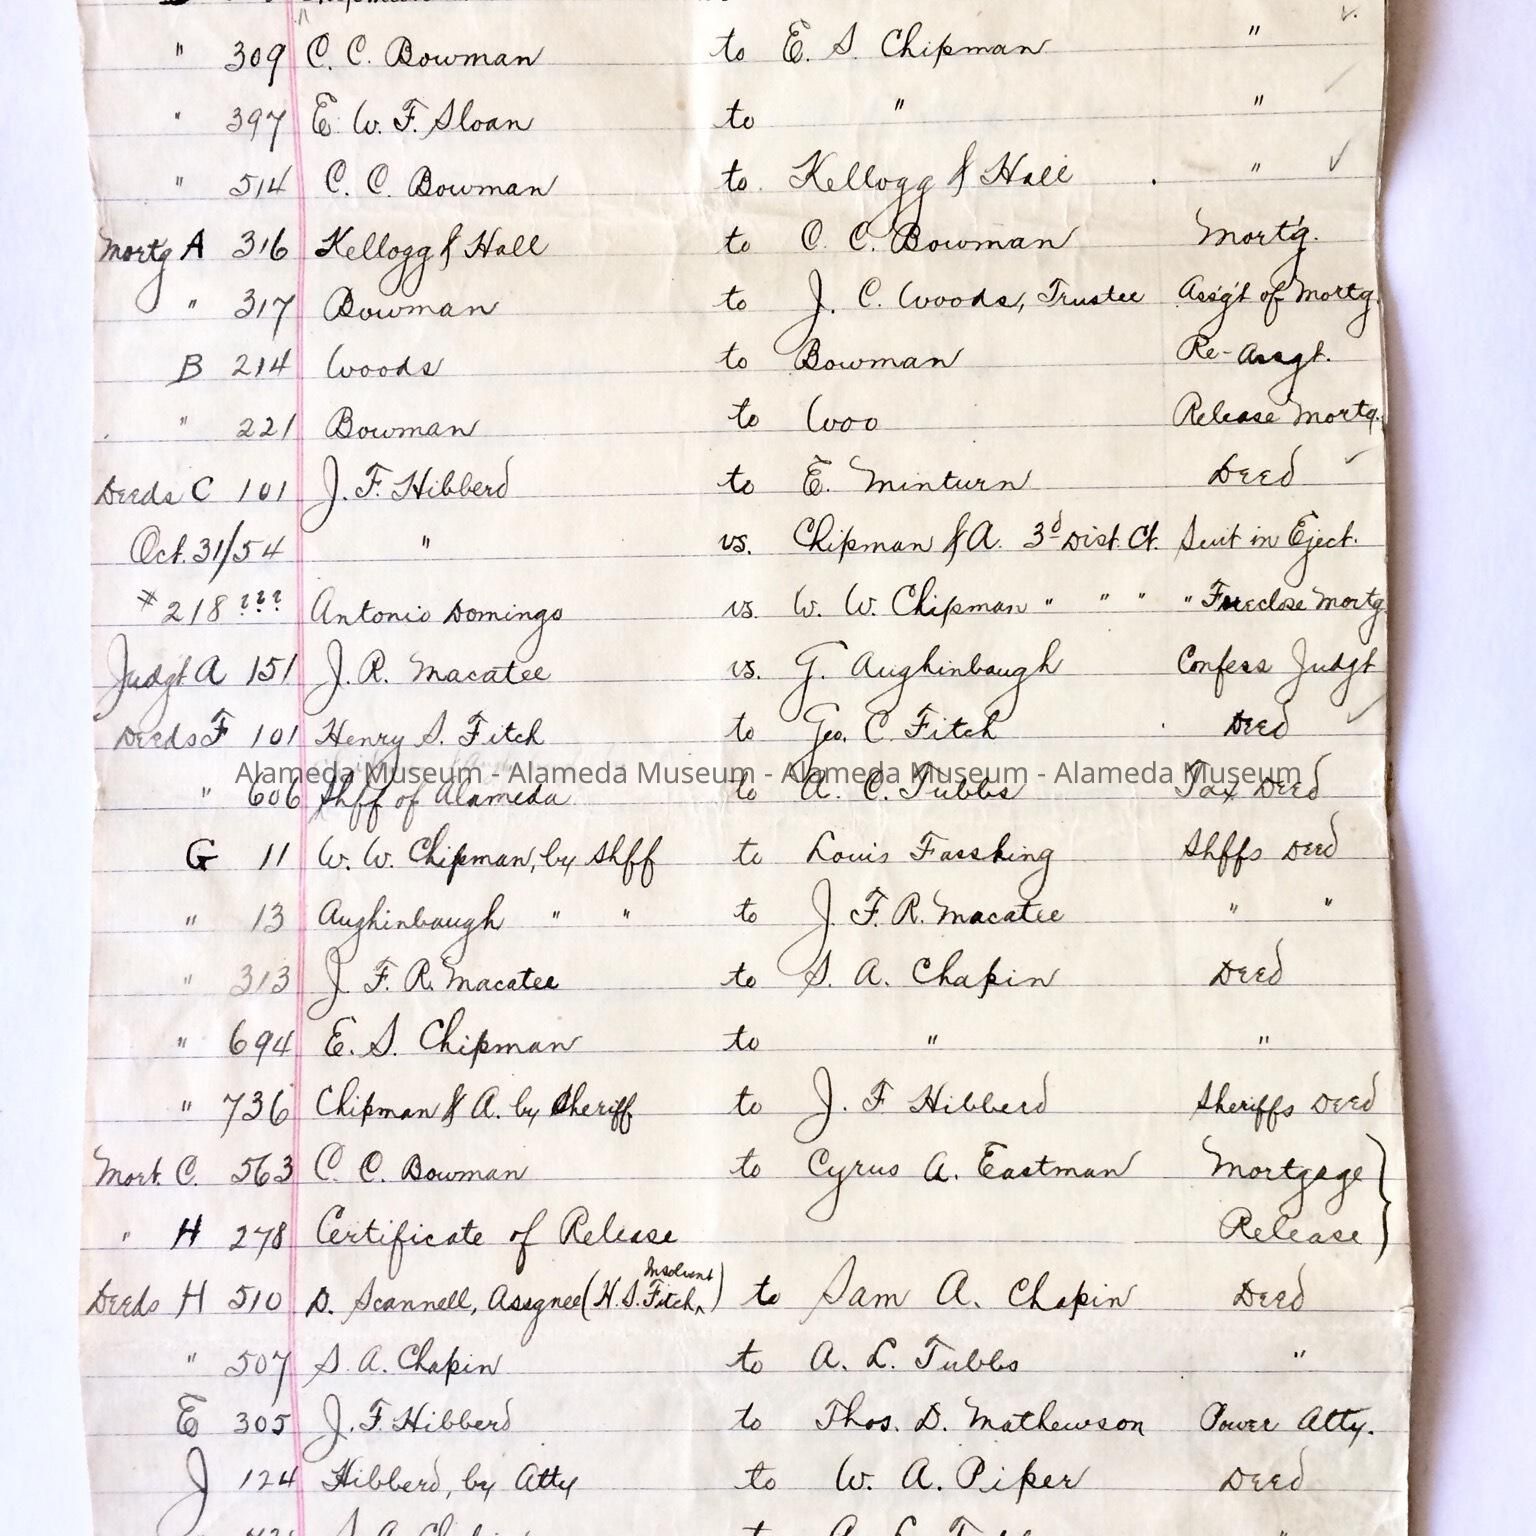 " 309 C. C. Bowman to E. S. Chipman "
" 397 E. W. F. Sloan to " "
" 514 C. C. Bowman to Kellogg & Hall " ✓
Mortg A 316 Kellogg & Hall to C. C. Bowman Mortg.
" 317 Bowman to J. C. Woods, Trustee Assg't of Mortg.
B 214 Woods to Bowman Re-Assgt.
" 221 Bowman to Woo Release Mortg.
Deeds C 101 J. F. Hibberd to E. Minturn Deed ✓
Oct. 31/54 " vs. Chipman & A. 3d Dist. Ct. Suit in Eject.
#218 ??? Antonio Domingo vs. W. W. Chipman " " " " Foreclose Mortg
Judgt A 151 J. R. Macatee vs. G. Aughinbaugh Confess Judgt
Deeds F 101 Henry S. Fitch to Geo. C. Fitch Deed ✓
Alameda Museum - Alameda Museum - Alameda Museum - Alameda Museum
" 606 Shff of Alameda to A. C. Tubbs Tax Deed
G 11 W. W. Chipman, by Shff to Louis Fassking Shffs Deed
" 13 Aughinbaugh " " to J. F. R. Macatee " "
" 313 J. F. R. Macatee to S. A. Chapin Deed
" 694 E. S. Chipman to " "
" 736 Chipman & A. by Sheriff to J. F. Hibberd Sheriffs Deed
Mort. C. 563 C. C. Bowman to Cyrus A. Eastman Mortgage
" H 278 Certificate of Release Release
Deeds H 510 D. Scannell, Assgnee (H. S. Fitch, Insolvent) to Sam A. Chapin Deed
" 507 S. A. Chapin to A. L. Tubbs "
E 305 J. F. Hibberd to Thos. D. Mathewson Power Atty.
J 124 Hibberd, by Atty to W. A. Piper Deed